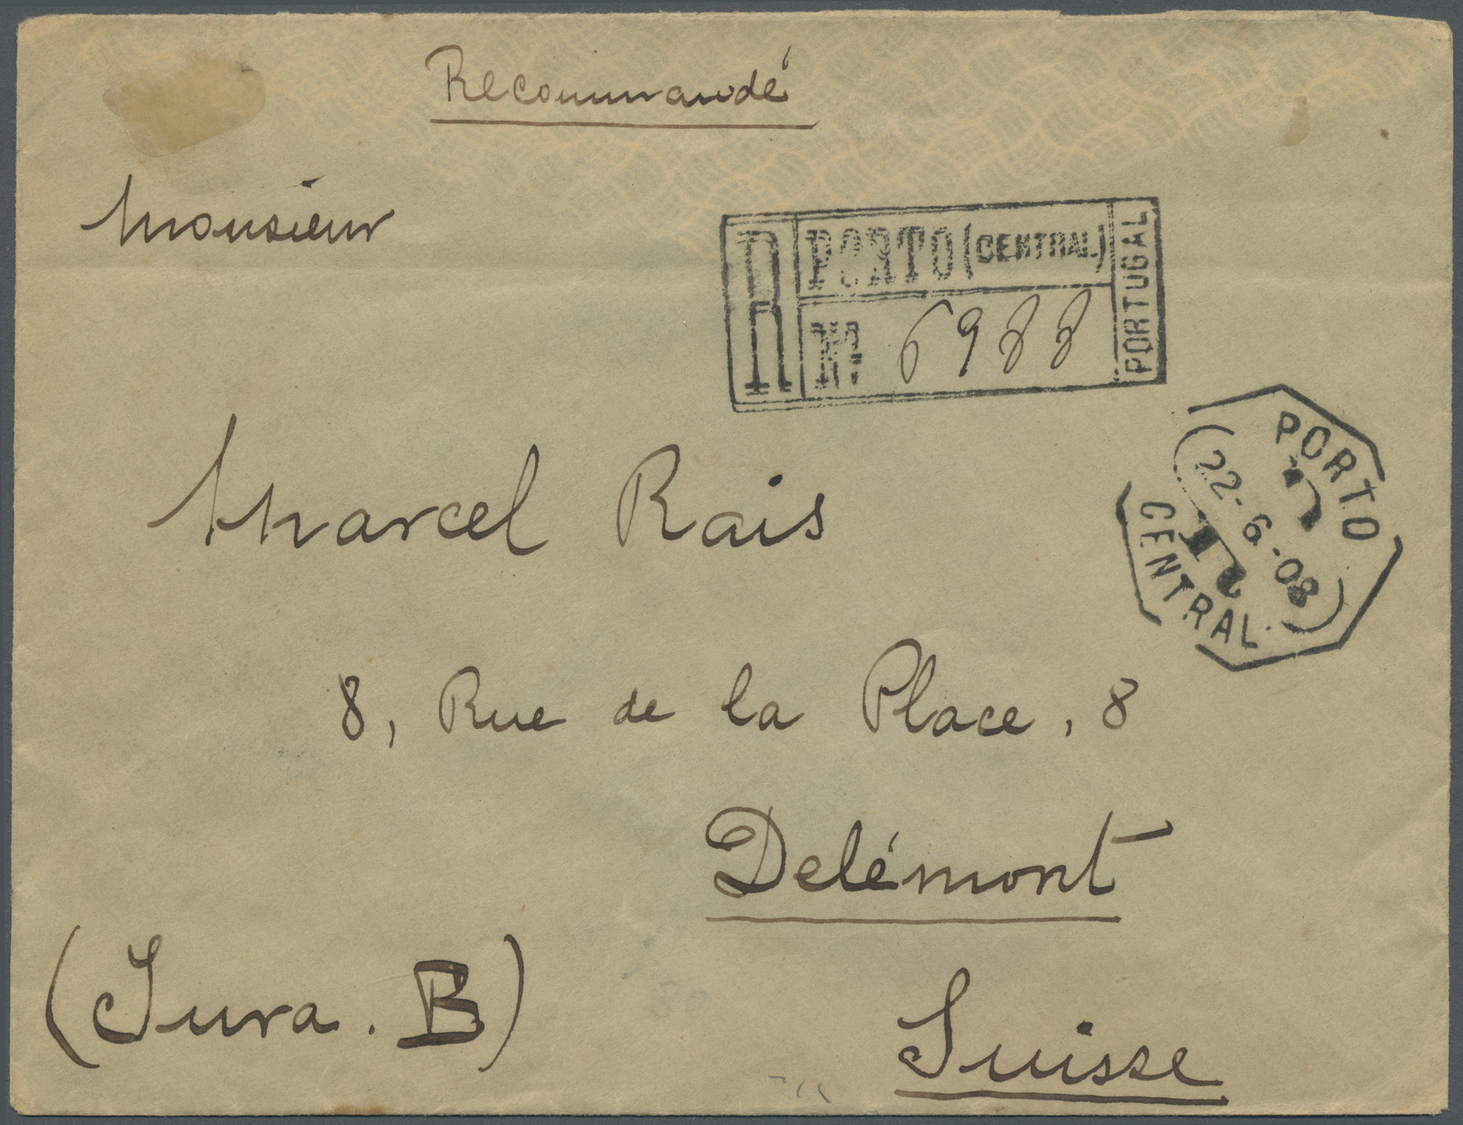 Recommandé
Monsieur
R PORTO (CENTRAL) PORTUGAL
Nº 6988
Marcel Rais
PORTO
22-6-08
CENTRAL
8, Rue de la Place, 8
Delémont
(Jura. B)
Suisse